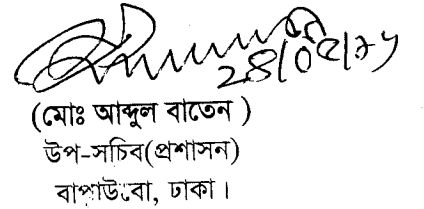 ২৪/০৫/২১
(মোঃ আব্দুল বাতেন )
উপ-সচিব(প্রশাসন)
বাপাউবো, ঢাকা।